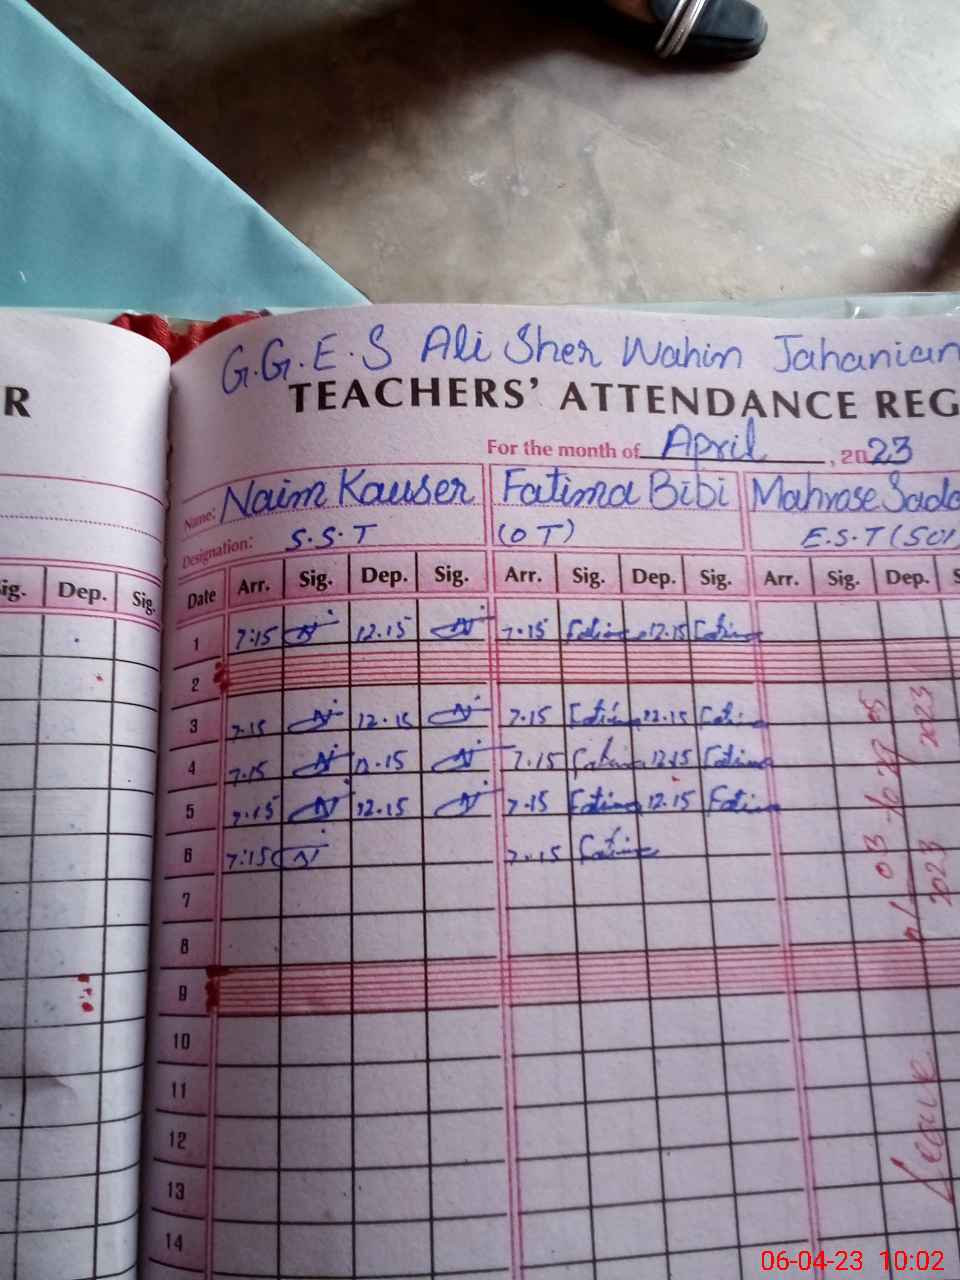 R
G.G.E.S Ali Sher Wahin Jahanian
TEACHERS' ATTENDANCE REG
For the month of April, 2023
Name: Naim Kauser Fatima Bibi Mahrose Sada
Designation: S.S.T (OT) E.S.T (SCI
ig. Dep. Sig.
Date Arr. Sig. Dep. Sig. Arr. Sig. Dep. Sig. Arr. Sig. Dep. S
1 7:15 N 12.15 N 7.15 Fatima 12.15 Fatima
2
3 7.15 N 12.15 N 7.15 Fatima 12.15 Fatima
4 7.15 N 12.15 N 7.15 Fatima 12.15 Fatima
5 7.15 N 12.15 N 7.15 Fatima 12.15 Fatima
6 7:15 N 7.15 Fatima
7
8
9
10
11
12
13
14
Leave
03 to 27 05
2023 2023
06-04-23 10:02